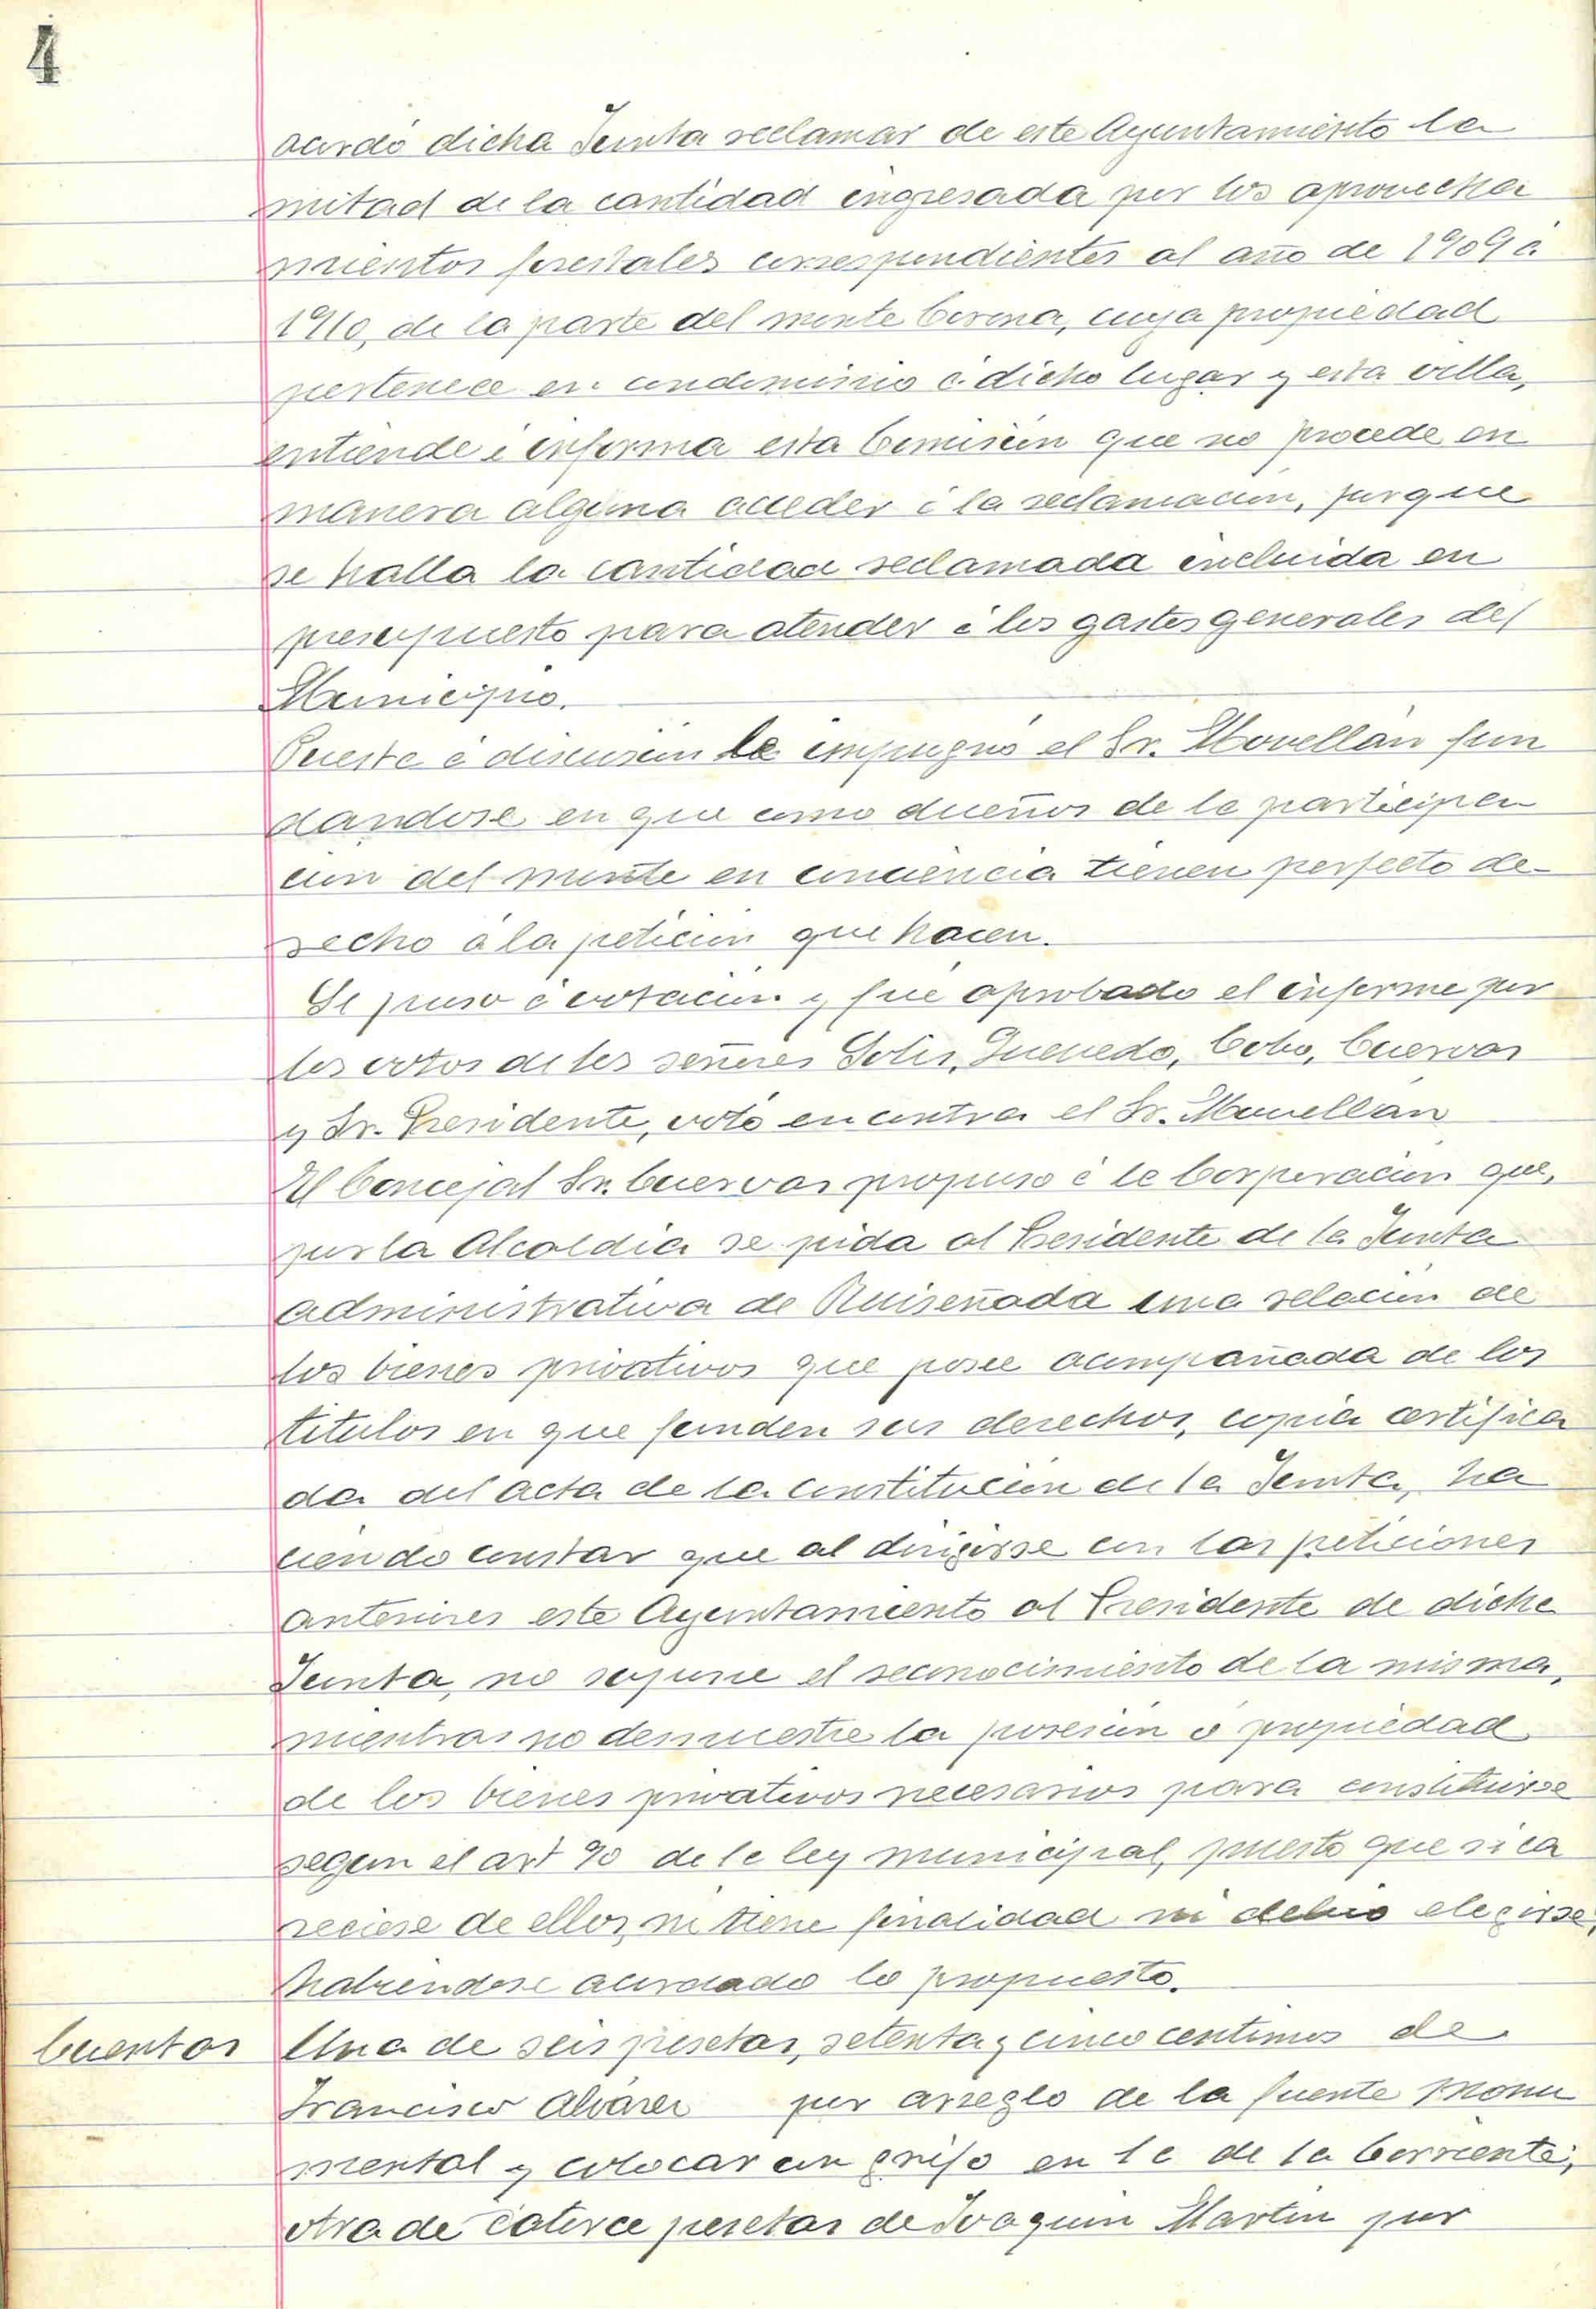 4
acordó dicha Junta reclamar de este Ayuntamiento la
mitad de la cantidad ingresada por los aprovecha
mientos forestales correspondientes al año de 1909 á
1910, de la parte del monte Corona, cuya propiedad
pertenece en condominio á dicho lugar y esta villa,
entiende é informa esta Comisión que no procede en
manera alguna acceder á la reclamacion, porque
se halla la cantidad reclamada incluida en
presupuesto para atender á los gastos generales del
Municipio.
Puesto á discusion le impugnó el Sr. Movellán fun
dandose en que como dueños de la participa
cion del monte en conciencia tienen perfecto de-
recho á la peticion que hacen.
Se puso á votacion y fué aprobado el informe por
los votos de los señores Solis, Quevedo, Cobo, Cuervas
y Sr. Presidente, votó en contra el Sr. Movellán
El Concejal Sr. Cuervas propuso á la Corporacion que,
por la Alcaldia se pida al Presidente de la Junta
administrativa de Ruiseñada una relacion de
los bienes privativos que posee acompañada de los
titulos en que funden sus derechos, copia certifica
da del acta de la constitucion de la Junta, ha
ciendo constar que al dirigirse con las peticiones
anteriores este Ayuntamiento al Presidente de dicha
Junta, no supone el reconocimiento de la misma,
mientras no demuestre la posesion ó propiedad
de los bienes privativos necesarios para constituirse
segun el art 90 de la ley municipal, puesto que si ca
reciese de ellos, ni tiene finalidad ni debió elegirse,
habiendose acordado lo propuesto.
Cuentas Una de seis pesetas, setenta y cinco centimos de
Francisco Alvarez por arreglo de la fuente monu
mental y colocar un grifo en la de la Corriente;
otra de catorce pesetas de Joaquin Martin por